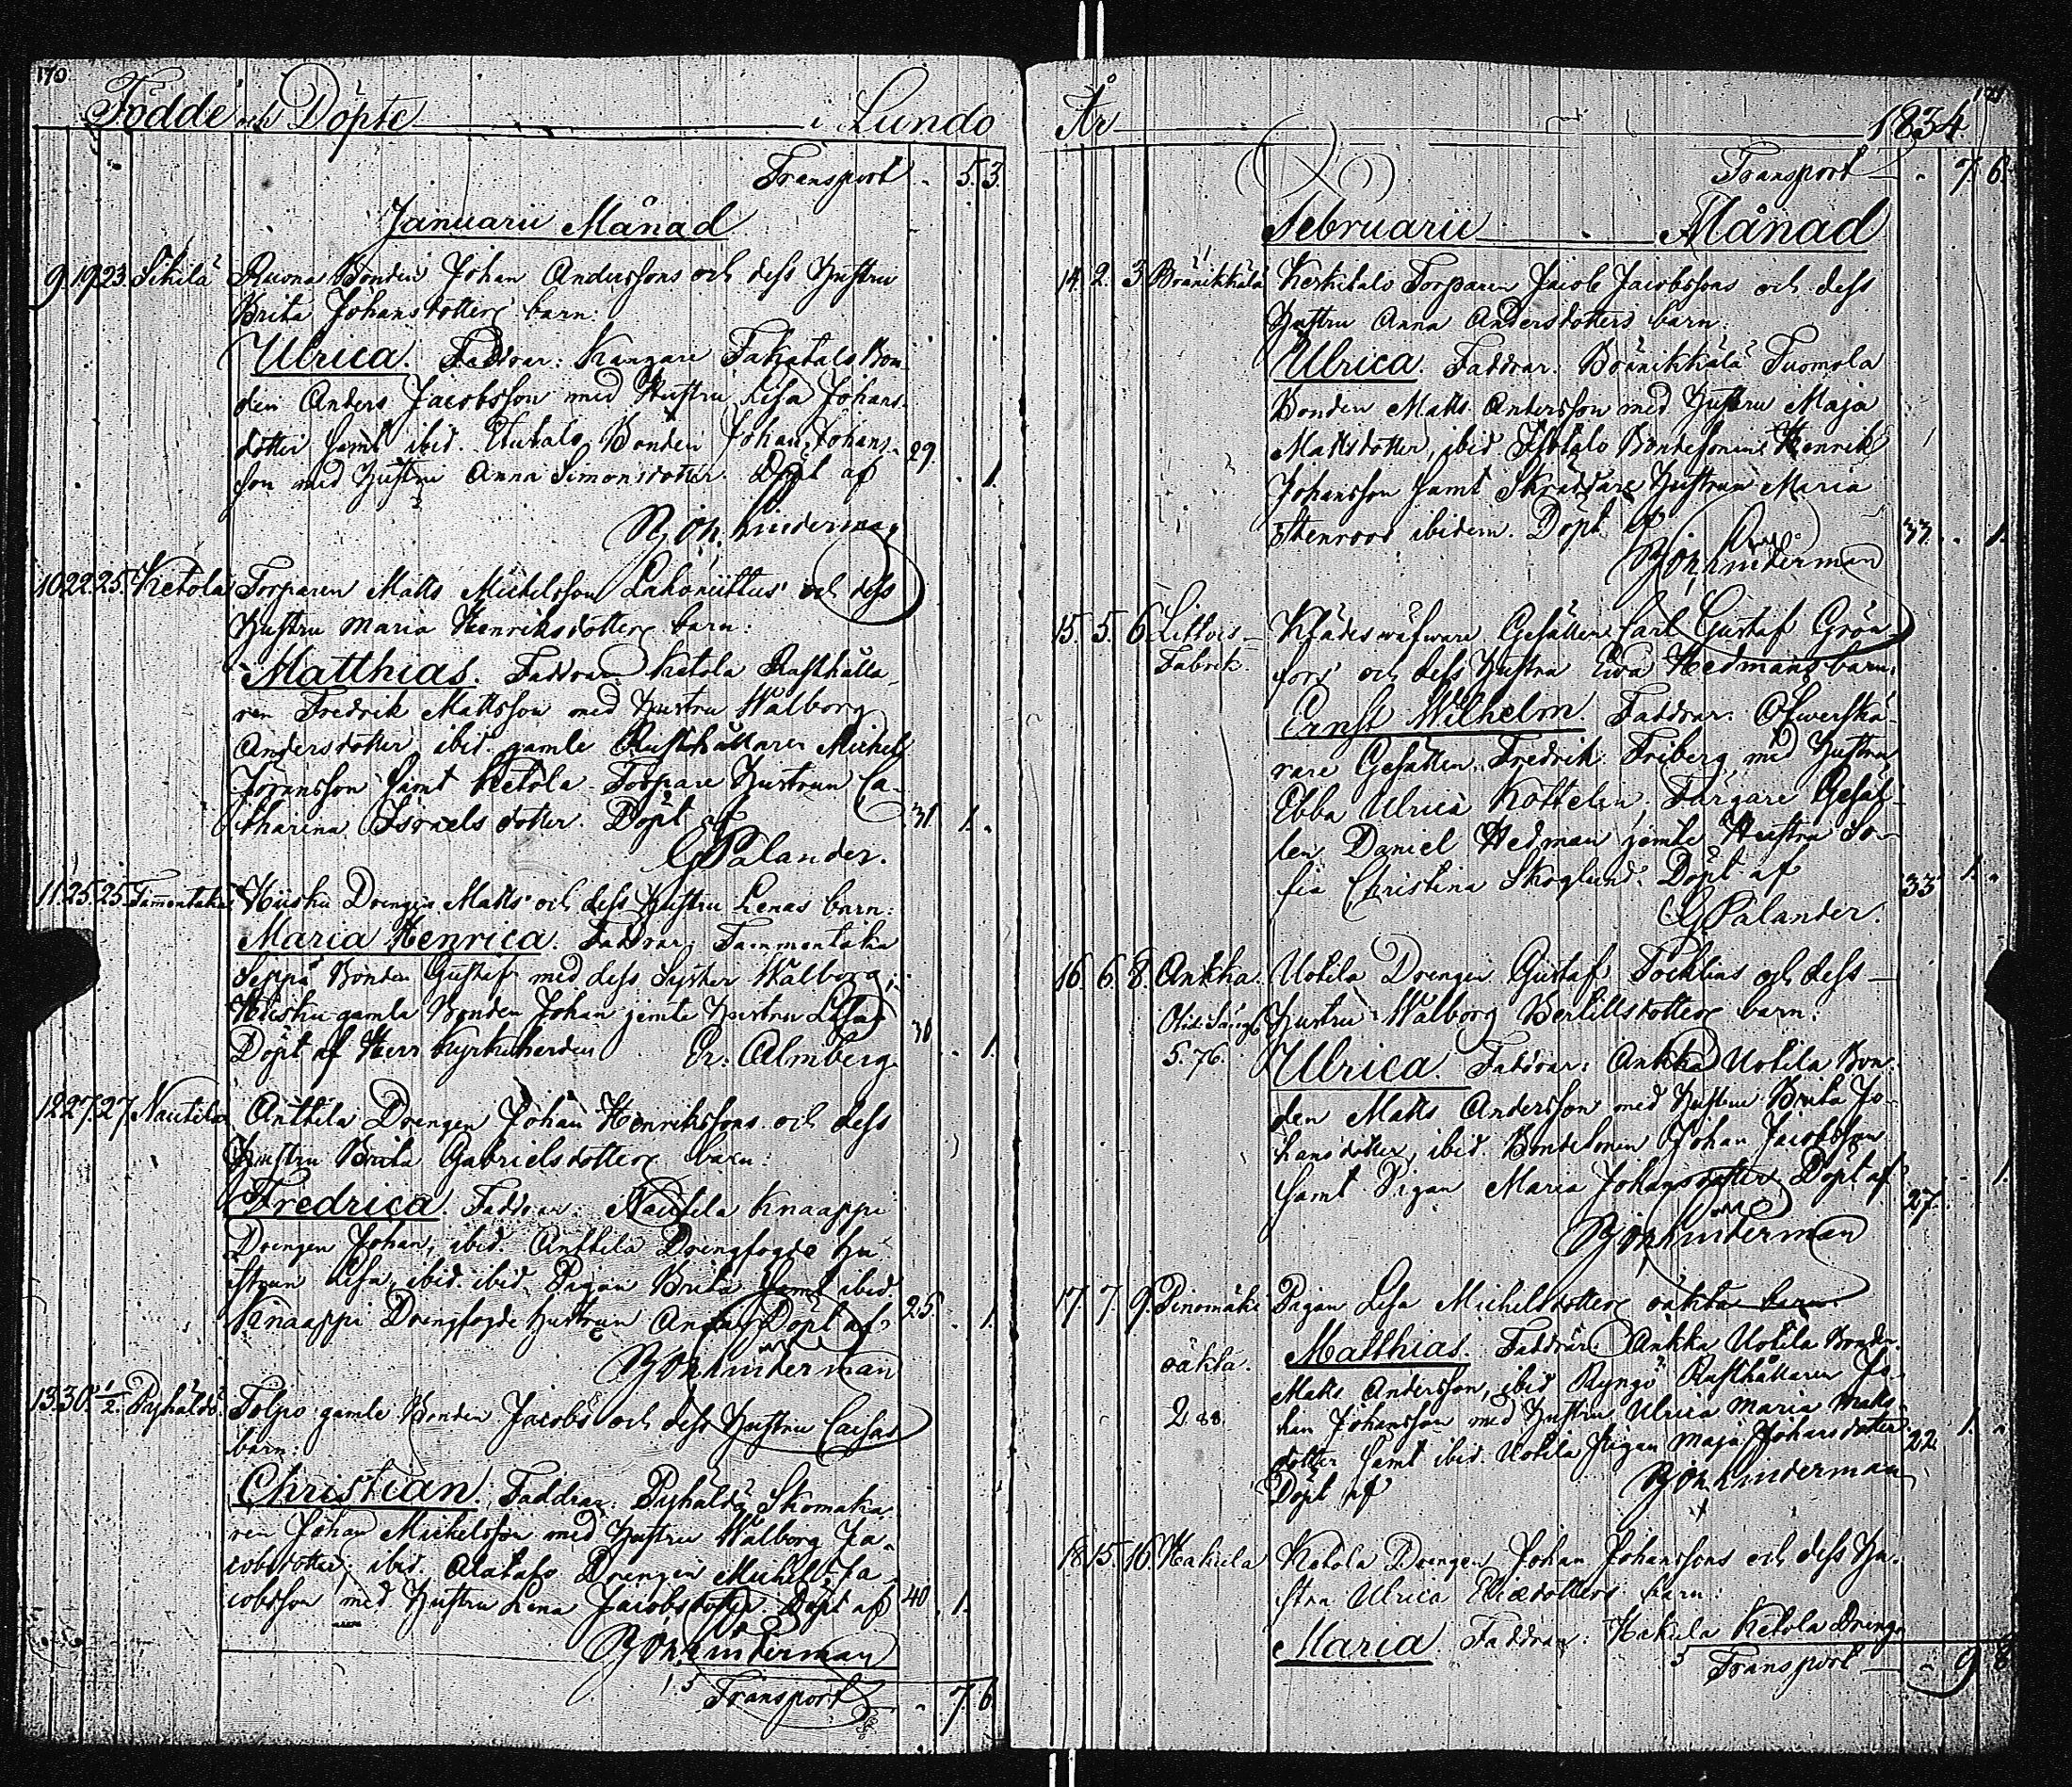 170.
Födde och Döpte i Lundo
Transport 5. 3.
Januarii Månad
9. 19. 23. Sikilä Ruona Bonden Johan Anderssons och dess Hustru
Brita Johansdotters barn:
Ulrica. Faddrar: Kangare Takatalo Bon-
den Anders Jacobsson med Hustru Lisa Johans-
dotter samt ibid. Bonden Johan Johans-
son med Hustru Anna Simonsdotter. Döpt af 29. 1.
Bj. Joh. Linderman
10. 22. 25. Ketola Torparen Matts Michelsson och dess
Hustru Maria Henriksdotters barn:
Matthias. Faddrar: Ketola Rusthålla-
ren Fredrik Mattsson med Hustru Walborg
Andersdotter, ibid. gamle Rusthållaren Michel
Jöransson samt Ketola Torpare Hustrun Ca-
tharina Israelsdotter. Döpt af 31. 1.
G Palander.
11. 25. 25. Tammentaka Hiisku Drengen Matts och dess Hustru Lenas barn:
Maria Henrica. Faddrar: Tammentaka
Seppä Bonden Gustaf med dess Syster Walborg,
Hiisku gamla Bonden Johan jemte Hustru Lisa
Döpt af Herr Kyrkoherden Er. Almberg. 30 1.
12. 27. 27. Nautila Anttila Drengen Johan Henrikssons och dess
Hustru Brita Gabrielsdotters barn:
Fredrica. Faddrar: Nautila Knaappi
Drengen Johan, ibid. Anttila Drengfogde Hu-
strun Lisa, ibid. ibid. Pigan Brita samt ibid.
Knaappi Drengfogde Hustrun Anna Döpt af 25. 1.
Bj. Joh. Linderman
13. 30. 1/2. Pyhältö Tolpo gamle Bonden Jacobs och dess Hustru Caisas
barn:
Christian. Faddrar: Skomaka-
ren Johan Michelsson med Hustru Walborg Ja-
cobsdotter, ibid. Alatalo Drengen Michel Ja-
cobsson med Hustru Lena Jacobsdotter Döpt af 40. 1.
Bj. Joh. Linderman
Transport 7. 6
År 1834
Transport 7 6.
Februarii Månad
14. 2. 3. Bränikkälä Kerkitalo Torparen Jacob Jacobssons och dess
Hustru Anna Andersdotters barn:
Ulrica. Faddrar: Bränikkälä Tuomola
Bonden Matts Andersson med Hustru Maja
Mattsdotter, ibid. Isotalo Bondesonen Henrik
Johansson samt Skräddare Hustrun Maria
Stenroos ibidem. Döpt af 33. 1.
Bj. Joh. Linderman
15. 5. 6. Littois Klädeswäfware Gesällen Carl Gustaf Grön-
Fabrik. fors och dess Hustru Ewa Hedmans barn:
Ernst Wilhelm. Faddrar: Öfwerskä-
rare Gesällen Fredrik Friberg, med Hustru
Ebba Ulrica Kottelin. Färgare Gesäl-
len Daniel Hedman jemte Hustru So-
fia Christina Skoglund. Döpt af 33 1.
G Palander.
16. 6. 8. Ankka. Uotila Drengen Gustaf Tocklins och dess
Hustru Walborg Bertillsdotters barn:
5. 76. Ulrica. Faddrar: Ankka Uotila Bon-
den Matts Andersson med Hustru Brita Jo-
hansdotter, ibid. Bondesonen Johan Jacobsson
samt Pigan Maria Johansdotter Döpt af 27. 1.
Bj. Joh. Linderman
17. 7. 9. Pinomäki Pigan Lisa Michelsdotters oäkta barn
oäkta. Matthias. Faddrar: Ankka Uotila Bonden
Matts Andersson, ibid. Ryngö Rusthållaren Jo-
2. 88. han Johansson med Hustru Ulrica Maria Matts-
dotter samt ibid. Uotila Pigan Maja Johansdotter 22. 1.
Döpt af Bj. Joh. Linderman
18. 15. 16. Hakula Ketola Drengen Johan Johanssons och dess Hu-
stru Ulrica Eliædotters barn:
Maria Faddrar: Hakula Ketola Dreng-
Transport 9 8